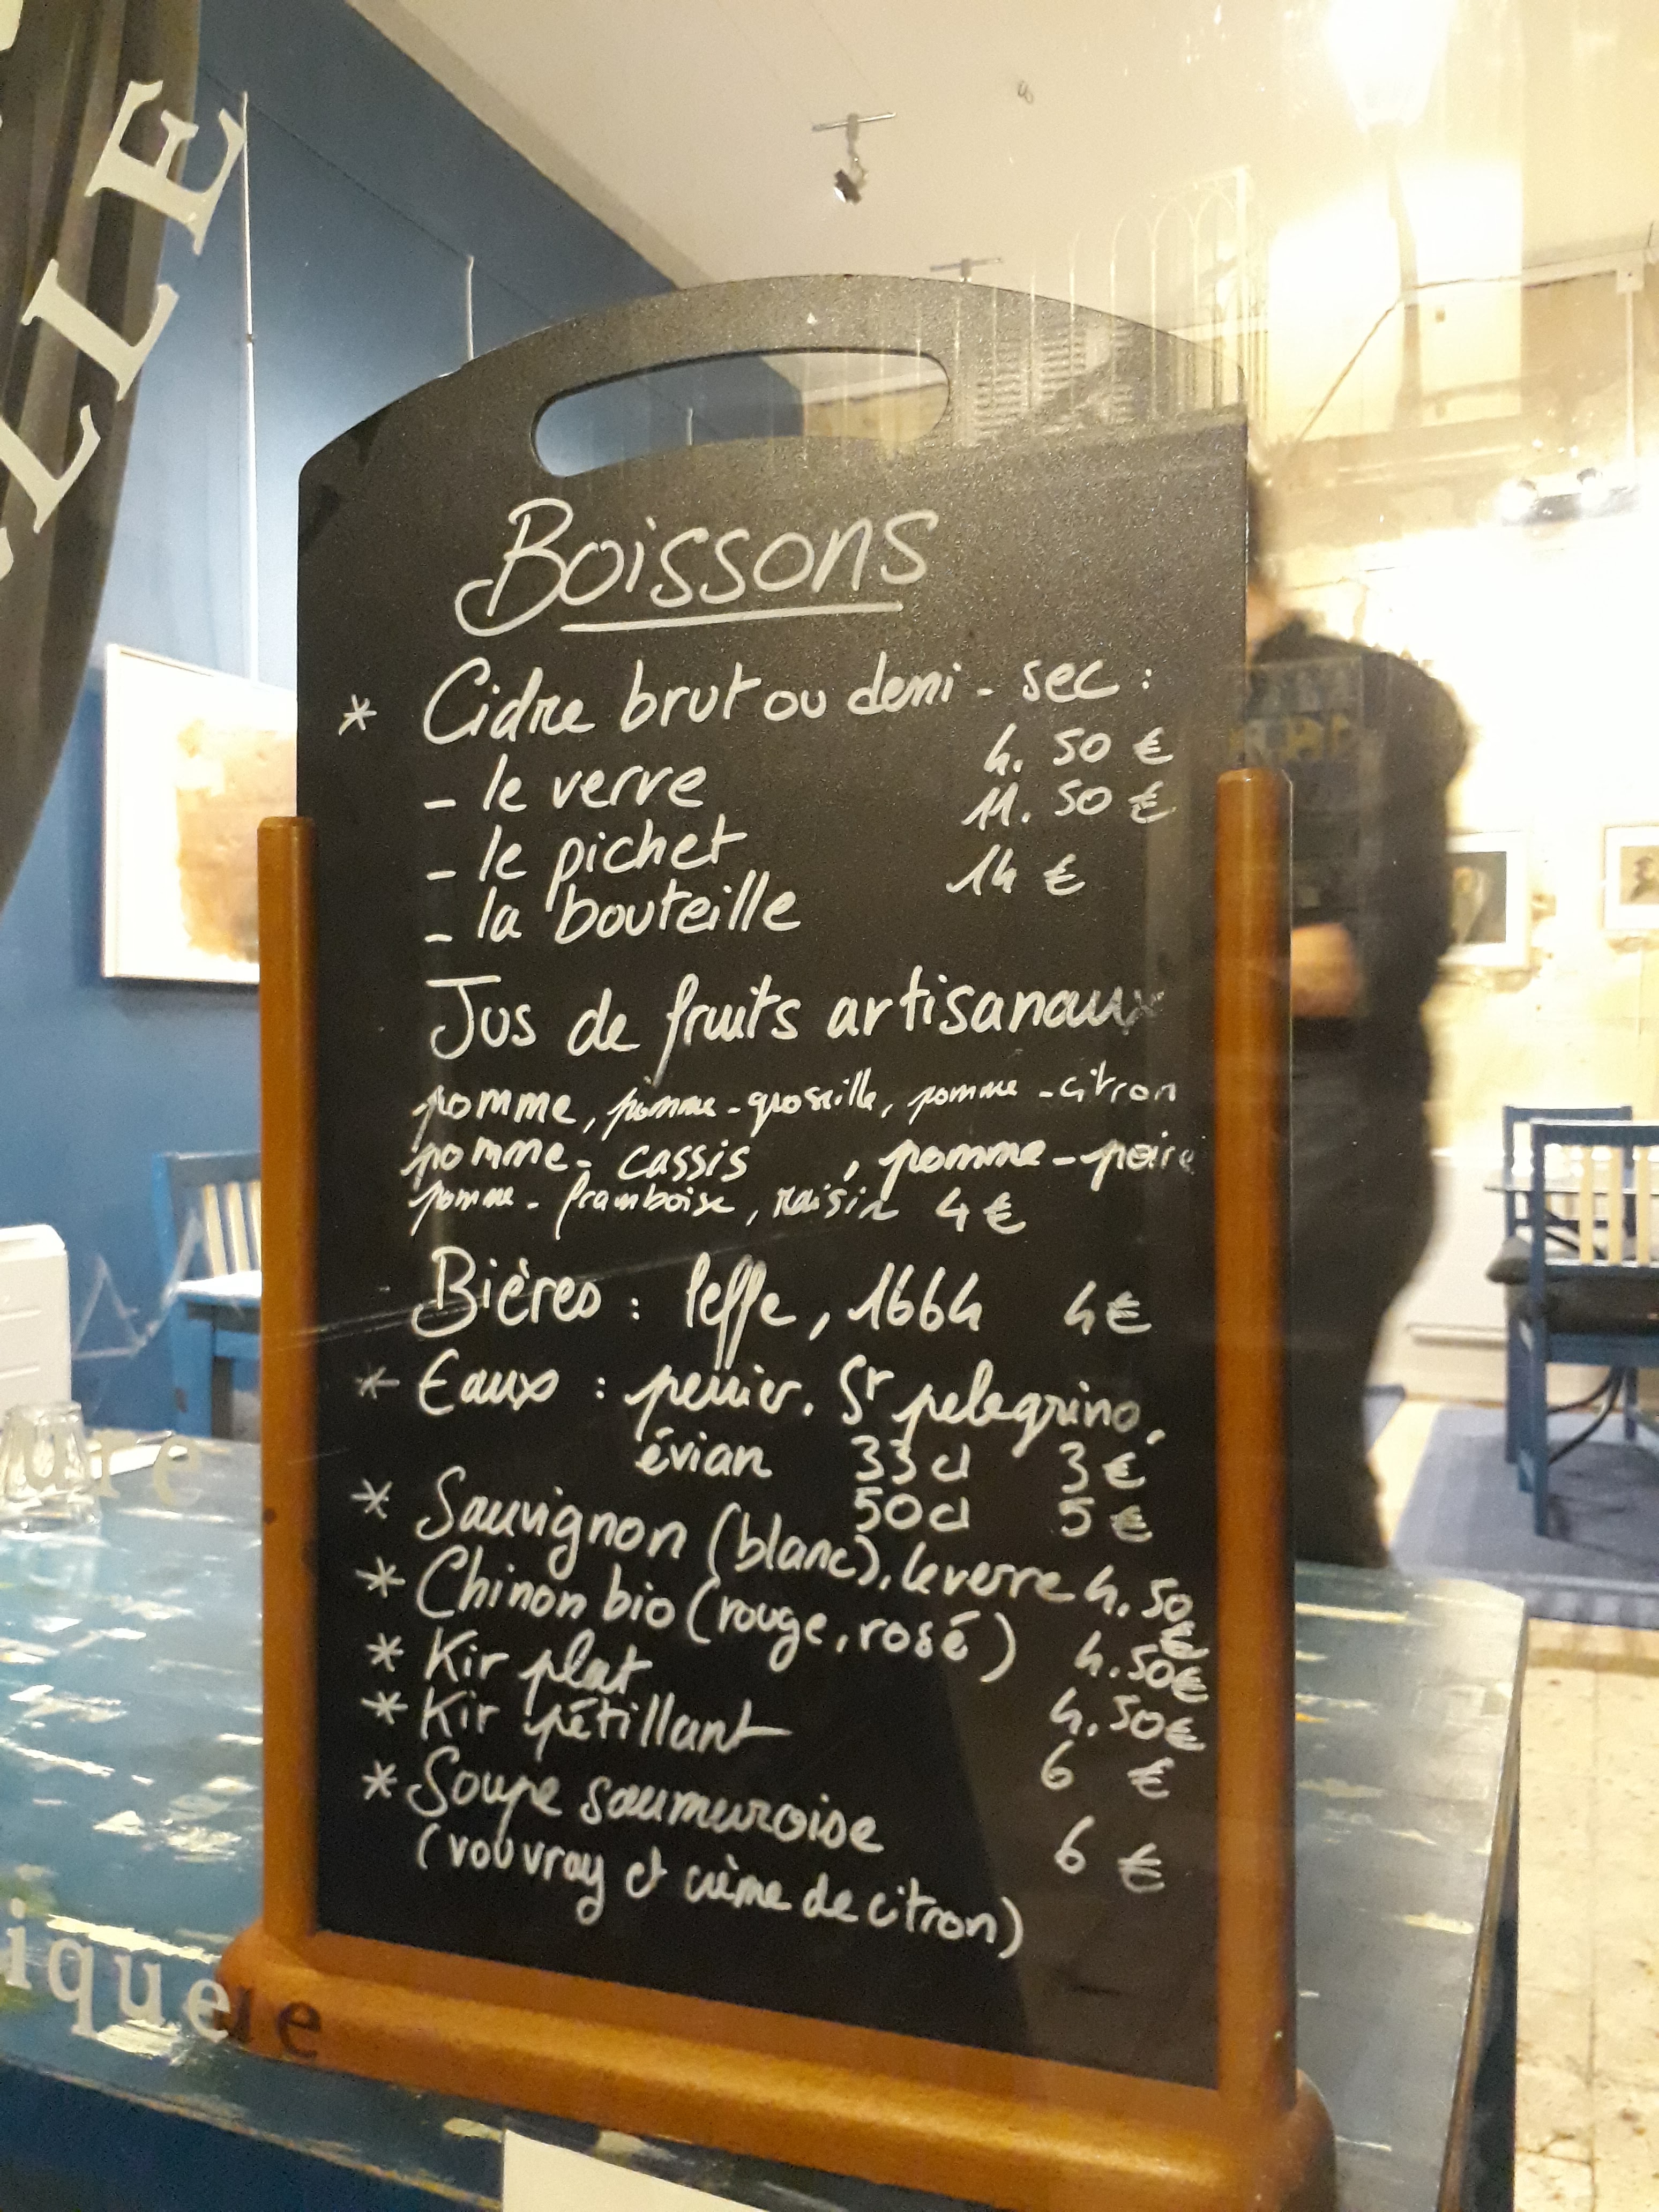 ELLE
Boissons
* Cidre brut ou demi-sec :
- le verre 4.50 €
- le pichet 11.50 €
- la bouteille 14 €
Jus de fruits artisanaux
pomme, pomme-groseille, pomme-citron
pomme-cassis , pomme-poire
pomme-framboise, raisin 4€
Bières : leffe, 1664 4€
* Eaux : perrier. St pelegrino,
évian 33cl 3€
50cl 5€
* Sauvignon (blanc), le verre 4.50€
* Chinon bio (rouge, rosé) 4.50€
* Kir plat 4.50€
* Kir pétillant 6 €
* Soupe saumuroise 6 €
(vouvray et crème de citron)
ure
ique